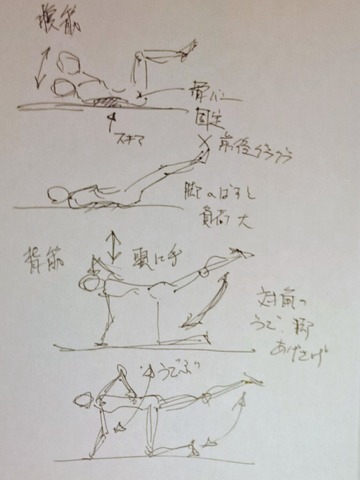 腹筋
骨バン
固定
スキマ
前後グラグラ
脚のばすし
負荷大
背筋
頭に手
対角の
うで 脚
あげさげ
うでふり